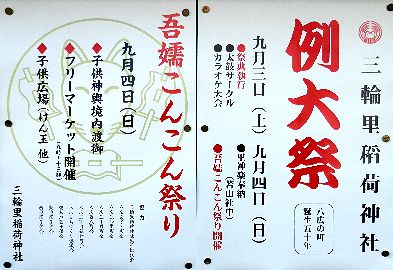 三輪里稲荷神社
例大祭
八広の町
誕生五十年
九月三日(土)
九月四日(日)
●祭典執行
●太鼓サークル
●カラオケ大会
●里神楽奉納
(若山社中)
●吾嬬こんこん祭り開催
吾嬬こんこん祭り
九月四日(日)
◆子供神輿境内渡御
◆フリーマーケット開催
◆子供広場(けん玉 他)
三輪里稲荷神社